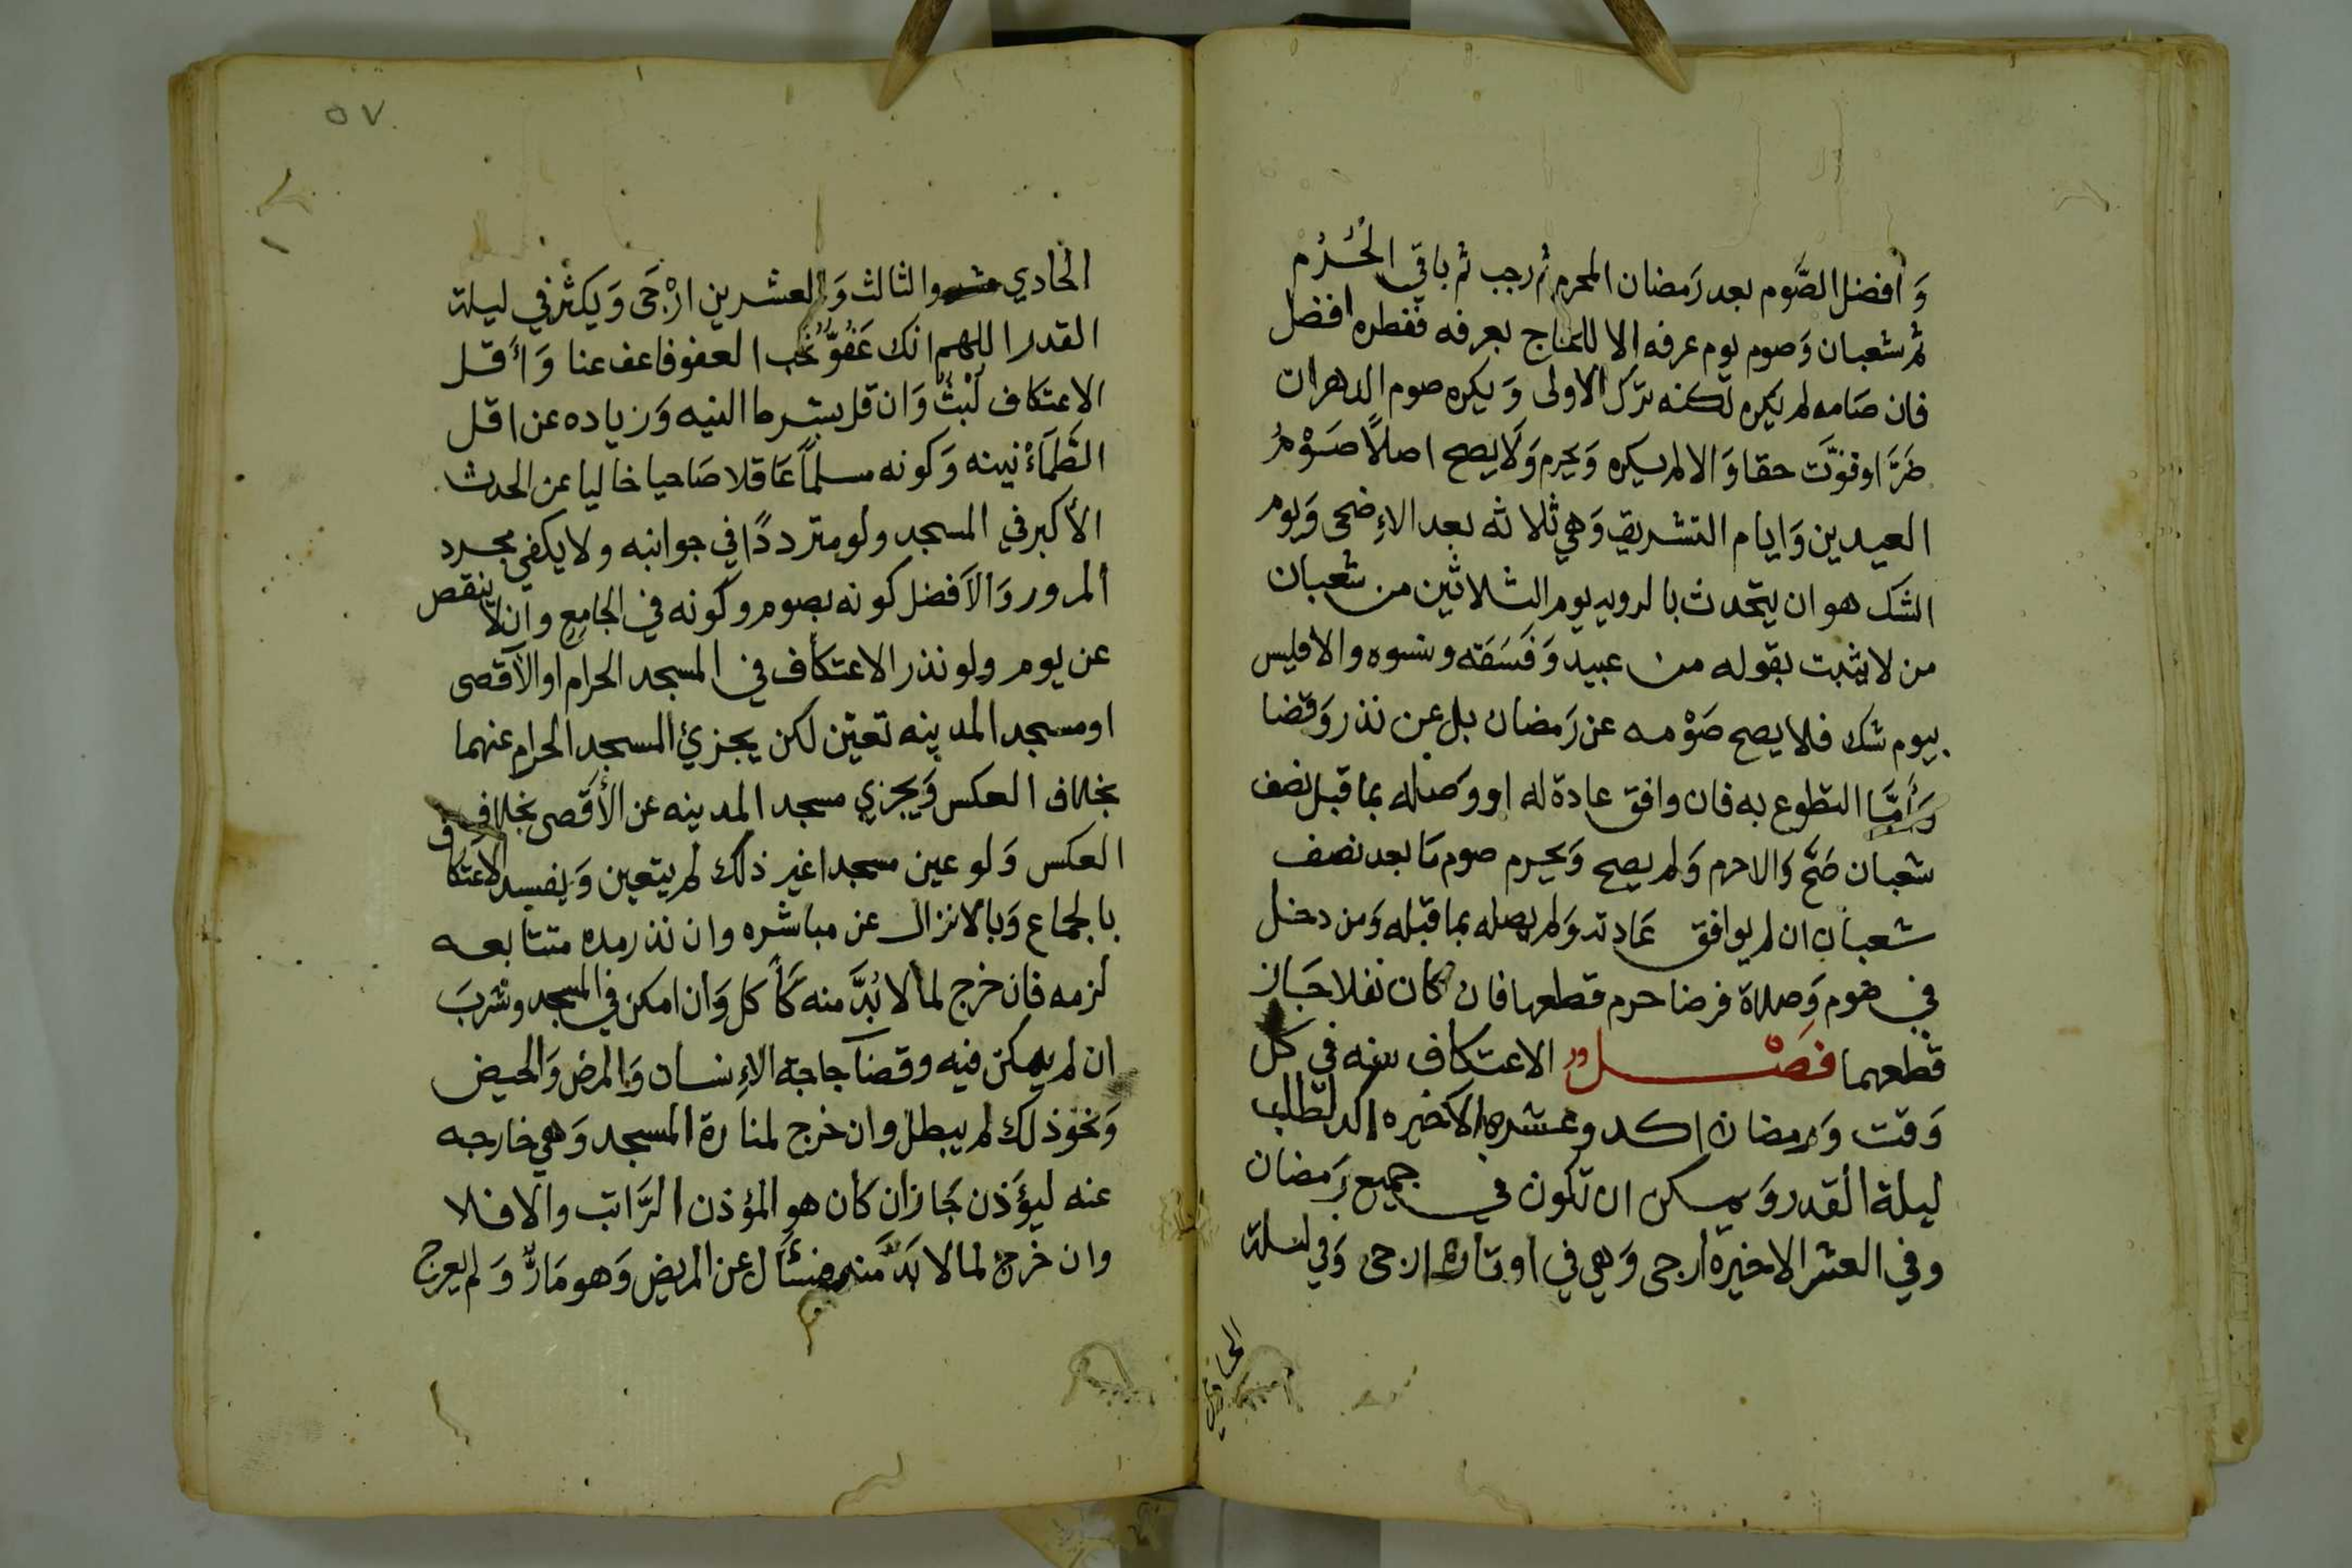 وَافضل الصَّوم بعد رَمضان المحرم ثم رجب ثم باقي الحُرُم
ثم شعبان وَصوم يوم عرفه الا للحاج بعرفه ففطره افضل
فان صَامه لم يكره لكنه ترك الاولى وَيكره صوم الدهر ان
ضَرَّ او فوَّت حقا وَالا لم يكره وَيحرم وَلَا يصح اصلاً صَوْمُ
العيدين وَايام التشريق وَهي ثلاثه بعد الاِضحى وَيوم
الشك هو ان يتحدث بالرويه يوم الثلاثين من شعبان
من لا يثبت بقوله من عبيد وَفَسَقَه ونسوه والا فليس
بيوم شك فلا يصح صَوْمه عن رَمضان بل عن نذر وَقضا
وَأَمَّا التطوع به فان وافق عادة له او وَصله بما قبل نصف
شعبان صَحَّ وَالا حرم وَلم يصح وَيحرم صوم مَا بعد نصف
شعبان ان لم يوافق عَادته وَلم يصله بما قبله وَمن دخل
في صوم وَصلاة فرضا حرم قطعها فان كان نفلا جَاز
قطعهما فصْل الاعتكاف سنه في كل
وَقت وَرمضان اكد وعشره الاخيره اكد لطلب
ليلة القدر وَيمكن ان تكون في جميع رَمضان
وفي العشر الاخيرة ارجى وَهي في اوتاره ارجى وَفي ليلة
الحادي
٥٧
الحادي والثالث وَالعشرين ارْجَى وَيكثر في ليلة
القدر اللهم انك عَفُوٌّ تُحب العفو فاعف عنا وَأَقل
الاعتكاف لَبْثٌ وَان قل بشرط النيه وَزياده عن اقل
الطَّمَأْنينه وَكونه مسلماً عَاقلا صَاحيا خاليا عن الحدث
الأكبر في المسجد ولو مترددًا في جوانبه ولا يكفي مجرد
المرور وَالاَفضل كونه بصوم وكونه في الجامع وان لا ينقص
عن يوم ولو نذر الاعتكاف في المسجد الحرام او الاَقصى
او مسجد المدينه تعيّن لكن يجزئ المسجد الحرام عنهما
بخلاف العكس وَيجزي مسجد المدينه عن الأَقصى بخلاف
العكس وَلو عين مسجدا غير ذلك لم يتعين وَيفسد الاعتكاف
بالجماع وَبالانزال عن مباشره وان نذر مده متتابعه
لزمه فان خرج لما لا بُدَّ منه كَأكل وَان امكن في المسجد وشربَ
ان لم يمكن فيه وقضآ حاجة الاِنسان وَالمرض وَالحيض
وَنحو ذلك لم يبطل وان خرج لمنارة المسجد وَهي خارجه
عنه ليؤَذن جَاز ان كان هو المؤذن الرَّاتب والا فلا
وان خرج لما لا بَدَّ منه فسَأَل عن المريض وَهو مَارٌّ وَلم يعرج